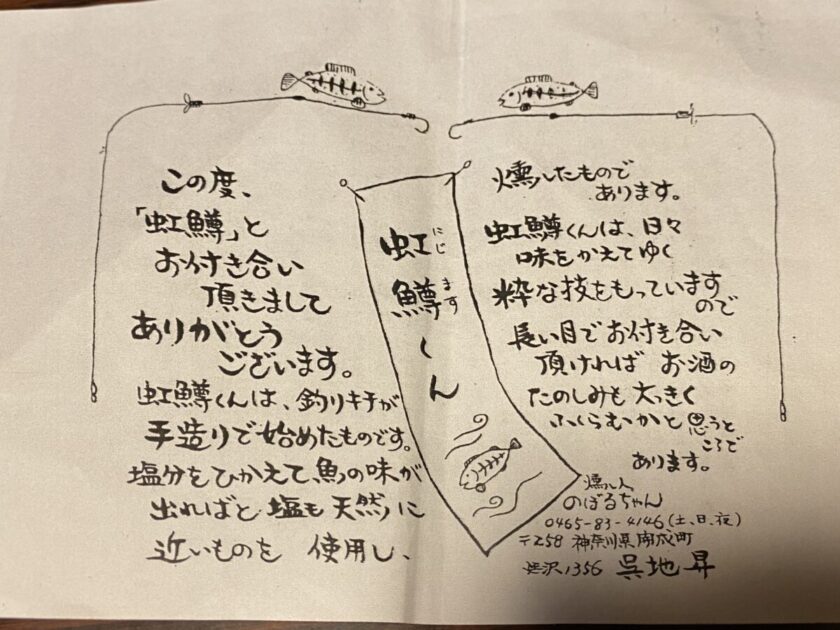 この度、
「虹鱒」と
お付き合い
頂きまして
ありがとう
ございます。
虹鱒くんは、釣りキチが
手造りで始めたものです。
塩分をひかえて、魚の味が
出ればと塩も天然に
近いものを 使用し、
虹鱒くん
にじ
ます
燻したもので
あります。
虹鱒くんは、日々
味をかえてゆく
粋な技をもっています
ので
長い目でお付き合い
頂ければ お酒の
たのしみも大きく
ふくらむかと思うと
ころで
あります。
燻し人
のぼるちゃん
0465-83-4146(土、日、夜)
〒258 神奈川県開成町
1356 呉地昇